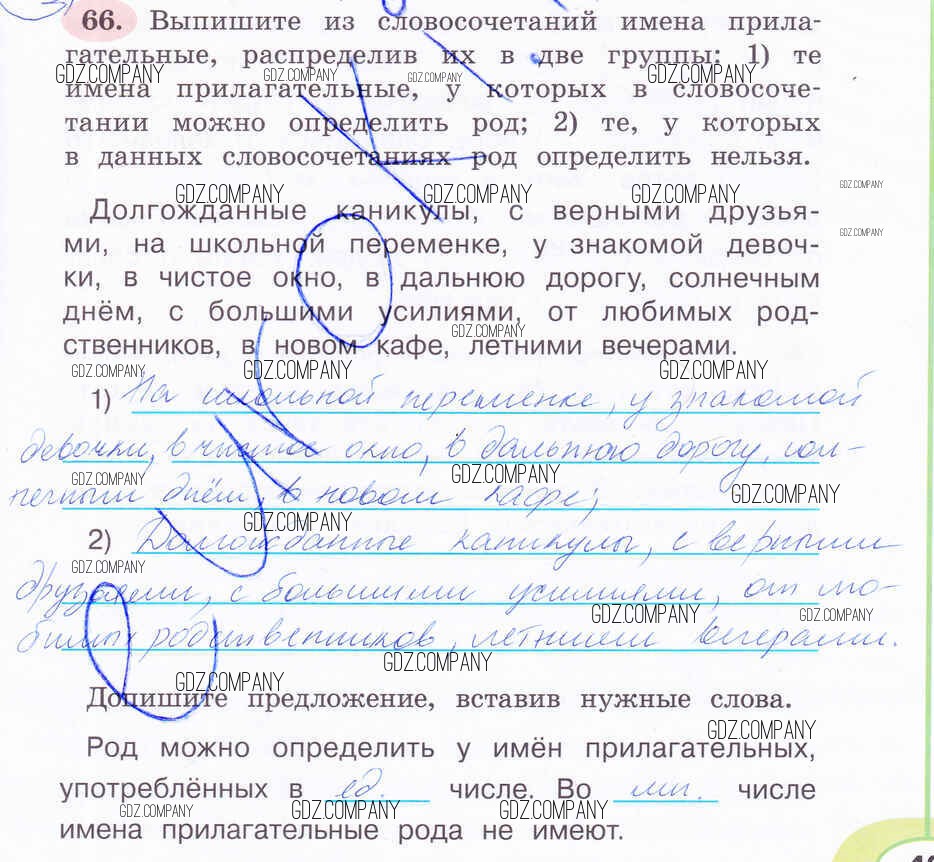 66. Выпишите из словосочетаний имена прила-
гательные, распределив их в две группы: 1) те
GDZ.COMPANY GDZ.COMPANY GDZ.COMPANY GDZ.COMPANY
имена прилагательные, у которых в словосоче-
тании можно определить род; 2) те, у которых
в данных словосочетаниях род определить нельзя.
GDZ.COMPANY GDZ.COMPANY GDZ.COMPANY GDZ.COMPANY
Долгожданные каникулы, с верными друзья-
GDZ.COMPANY
ми, на школьной переменке, у знакомой девоч-
ки, в чистое окно, в дальнюю дорогу, солнечным
днём, с большими усилиями, от любимых род-
GDZ.COMPANY
ственников, в новом кафе, летними вечерами.
GDZ.COMPANY GDZ.COMPANY GDZ.COMPANY
1) На школьной переменке, у знакомой
девочки, в чистое окно, в дальнюю дорогу, сол-
GDZ.COMPANY GDZ.COMPANY
нечным днём, в новом кафе;
GDZ.COMPANY
GDZ.COMPANY
2) Долгожданные каникулы, с верными
GDZ.COMPANY
друзьями, с большими усилиями, от лю-
GDZ.COMPANY GDZ.COMPANY
бимых родственников, летними вечерами.
GDZ.COMPANY
GDZ.COMPANY
Допишите предложение, вставив нужные слова.
GDZ.COMPANY
Род можно определить у имён прилагательных,
употреблённых в ед. числе. Во мн. числе
GDZ.COMPANY GDZ.COMPANY GDZ.COMPANY
имена прилагательные рода не имеют.